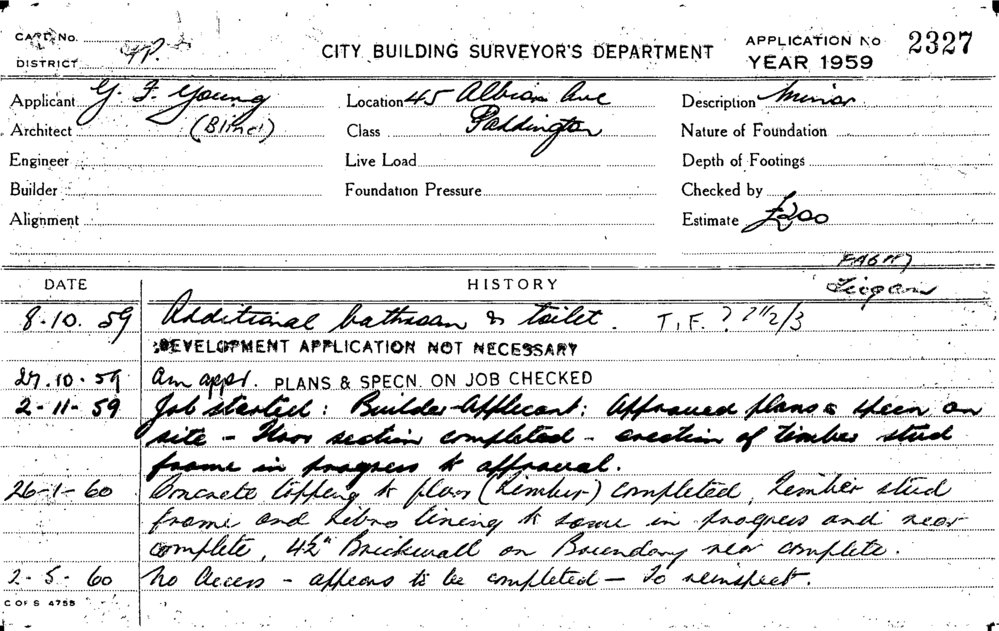 CARD No.
DISTRICT
CITY BUILDING SURVEYOR'S DEPARTMENT
APPLICATION No 2327
YEAR 1959
Applicant G. F. Young
Location 45 Albion Ave
Description Minor
Architect (Blind)
Class Paddington
Nature of Foundation
Engineer
Live Load
Depth of Footings
Builder
Foundation Pressure
Checked by
Alignment
Estimate £200
DATE
HISTORY
8.10.59 Additional bathroom & toilet. T.F.?
DEVELOPMENT APPLICATION NOT NECESSARY
27.10.59 Am appt. PLANS & SPECN. ON JOB CHECKED
2-11-59 Job started: Builder-Applicant: Approved plans & specn on
site - Floor section completed - erection of timber stud
frame in progress to approval.
26-1-60 Concrete topping to floor (timber) completed, Timber stud
frame and fibro lining to same in progress and near
complete, 4½" Brickwall on Boundary near complete.
2-5-60 No Access - appears to be completed - To reinspect.
C OF S 4755